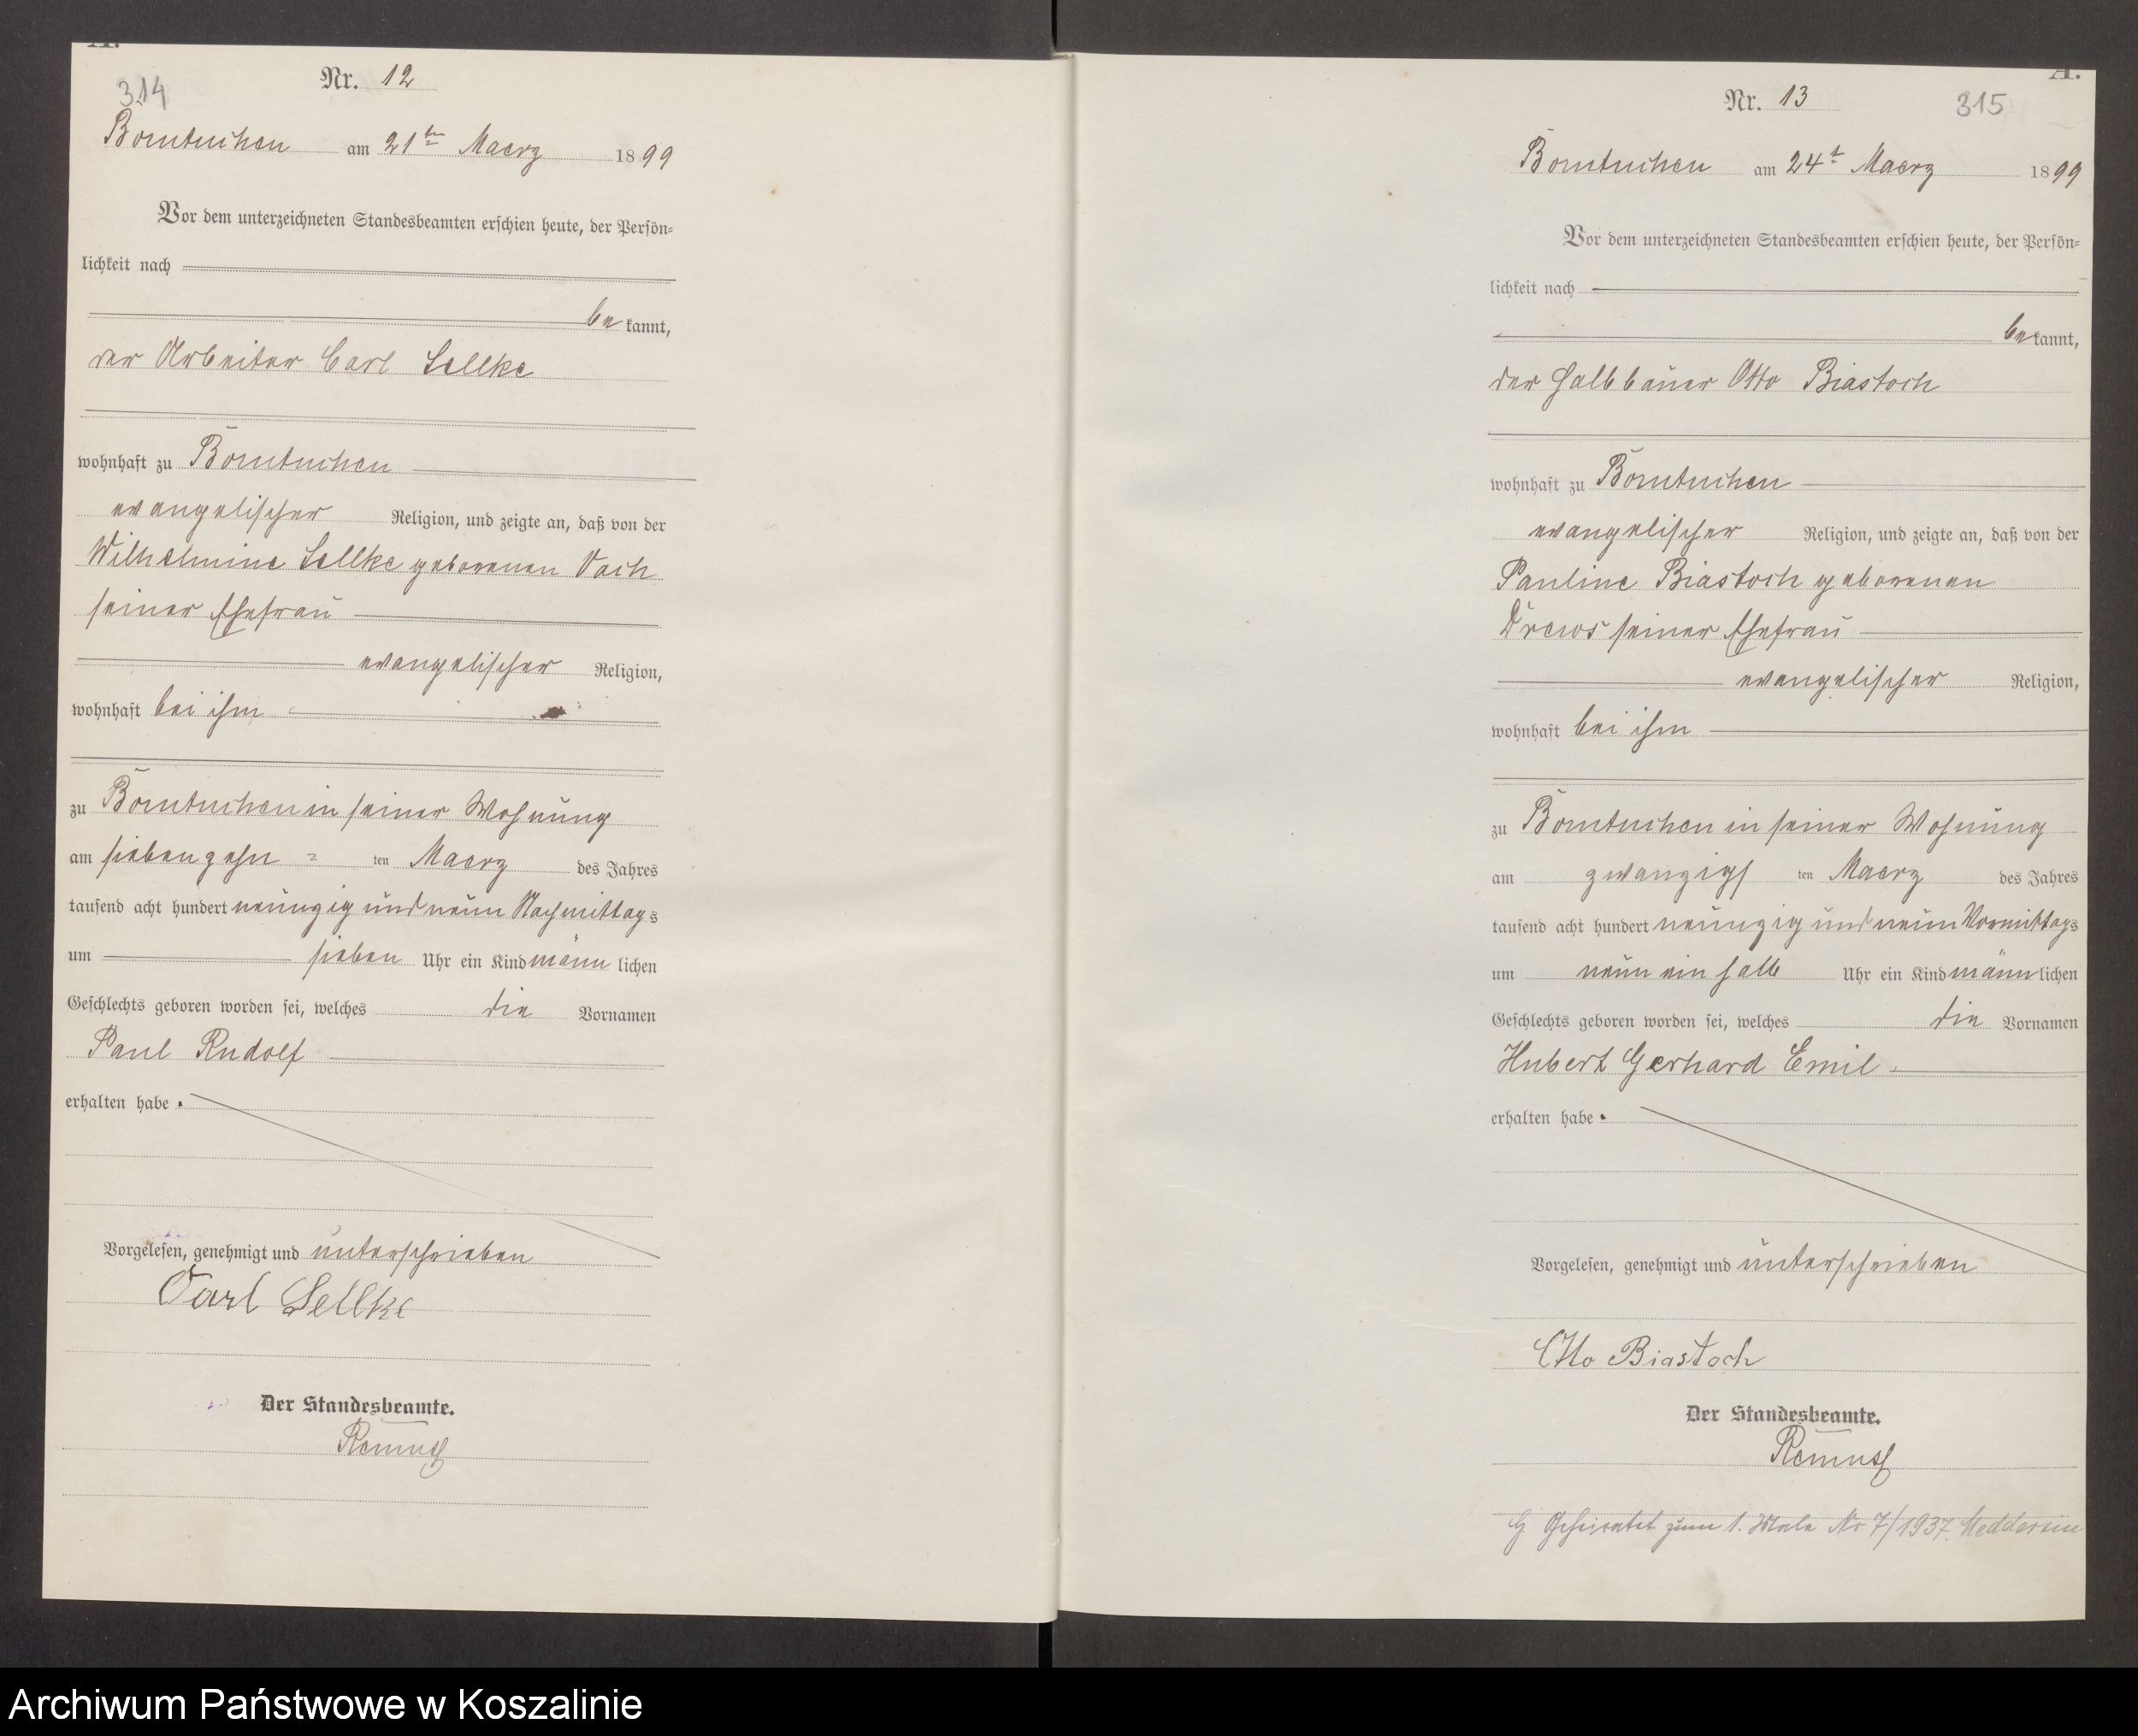 A.
Nr. 12
314
Borntuchen am 21ten Maerz 1899
Vor dem unterzeichneten Standesbeamten erschien heute, der Persön-
lichkeit nach
be kannt,
der Arbeiter Carl Sellke
wohnhaft zu Borntuchen
evangelischer Religion, und zeigte an, daß von der
Wilhelmine Sellke geborenen Vach
seiner Ehefrau
evangelischer Religion,
wohnhaft bei ihm
zu Borntuchen in seiner Wohnung
am siebenzehn = ten Maerz des Jahres
tausend acht hundert neunzig und neun Nachmittags
um sieben Uhr ein Kind männlichen
Geschlechts geboren worden sei, welches die Vornamen
Paul Rudolf
erhalten habe.
Vorgelesen, genehmigt und unterschrieben
Carl Sellke
Der Standesbeamte.
Remus
A.
Nr. 13
315
Borntuchen am 24t Maerz 1899
Vor dem unterzeichneten Standesbeamten erschien heute, der Persön-
lichkeit nach
be kannt,
der Halbbauer Otto Biastoch
wohnhaft zu Borntuchen
evangelischer Religion, und zeigte an, daß von der
Pauline Biastoch geborenen
Drews seiner Ehefrau
evangelischer Religion,
wohnhaft bei ihm
zu Borntuchen in seiner Wohnung
am zwanzigs ten Maerz des Jahres
tausend acht hundert neunzig und neun Vormittags
um neun ein halb Uhr ein Kind männlichen
Geschlechts geboren worden sei, welches die Vornamen
Hubert Gerhard Emil
erhalten habe.
Vorgelesen, genehmigt und unterschrieben
Otto Biastoch
Der Standesbeamte.
Remus
G Geheiratet zum 1. Male Nr 7/1937 Meddersin
Archiwum Państwowe w Koszalinie